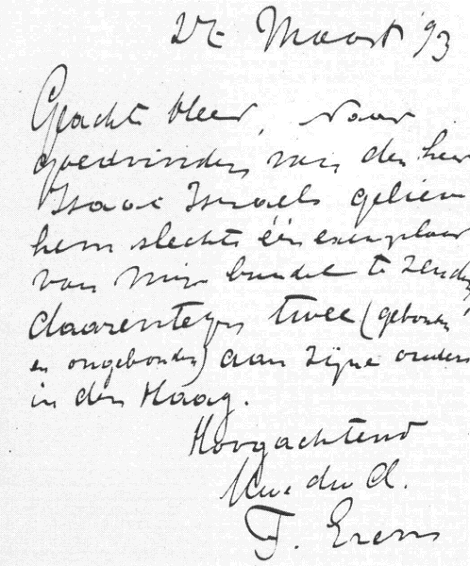 27 Maart '93
Geachte Heer, Naar
goedvinden van den heer
Isaac Israels gelieve
hem slechts één exemplaar
van mijn bundel te zenden
daarentegen twee (gebonden
en ongebonden) aan zijne ouders
in den Haag.
Hoogachtend
Uw. dw. d.
F. Erens